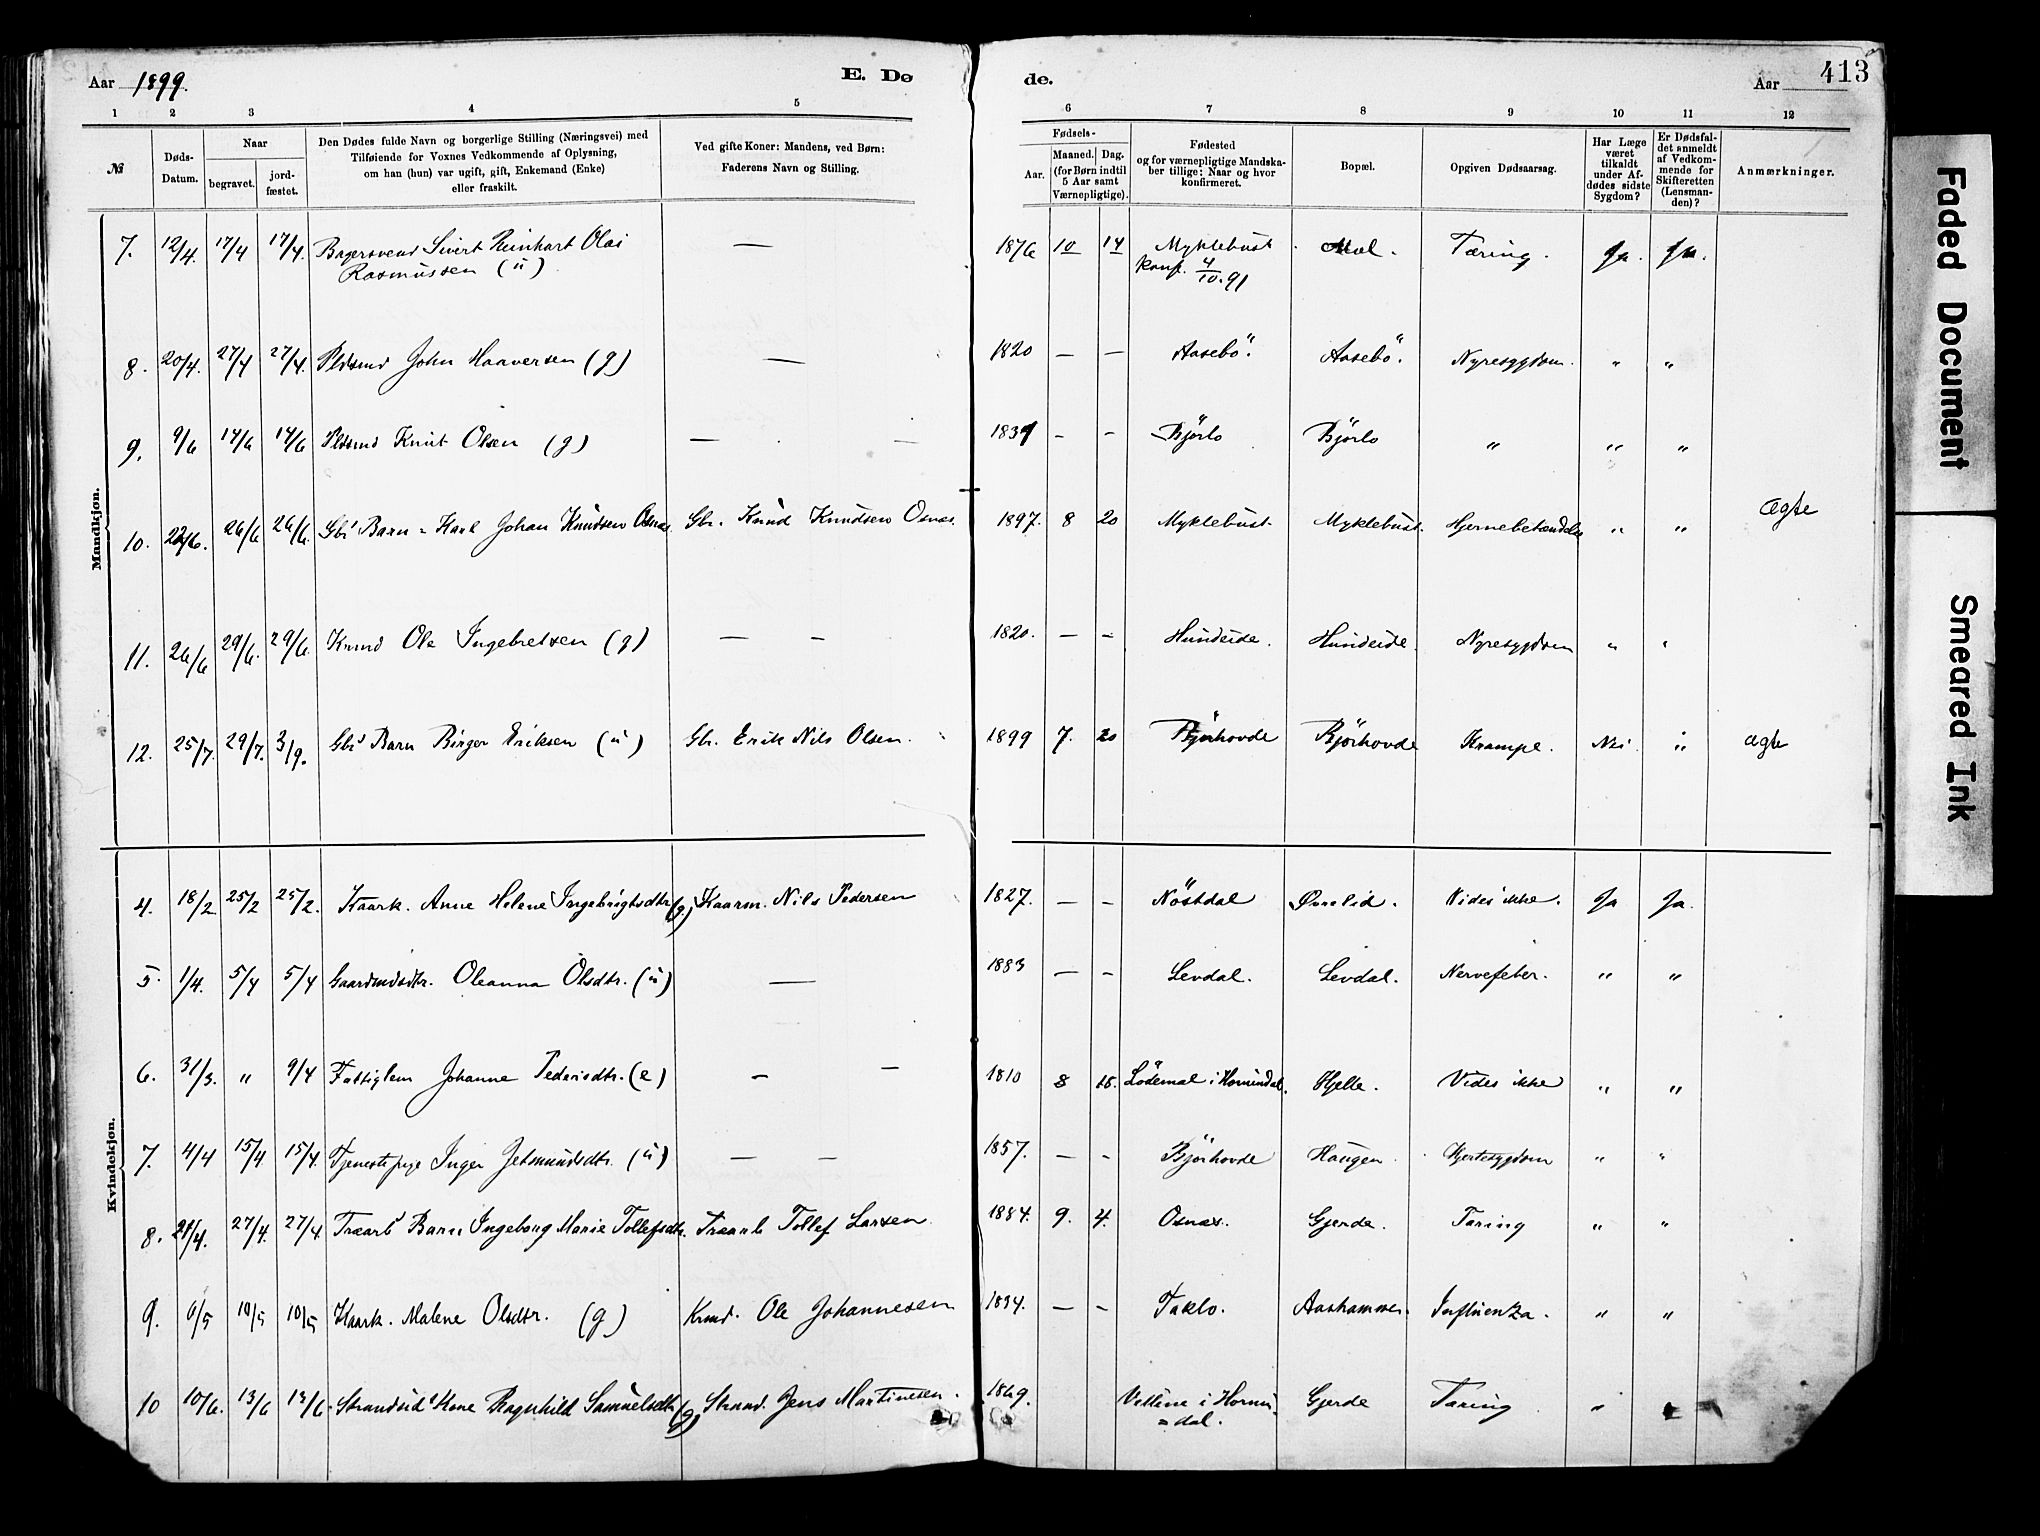 Aar 1899.
E. Dø
de.
Aar
413
1 2 3 4 5 6 7 8 9 10 11 12
№
Døds-Datum.
Naar
begravet.
jord-fæstet.
Den Dødes fulde Navn og borgerlige Stilling (Næringsvei) med
Tilføiende for Voxnes Vedkommende af Oplysning,
om han (hun) var ugift, gift, Enkemand (Enke)
eller fraskilt.
Ved gifte Koner: Mandens, ved Børn:
Faderens Navn og Stilling.
Fødsels-
Aar.
Maaned. Dag.
(for Børn indtil
5 Aar samt
Værnepligtige).
Fødested
og for værnepligtige Mandska-
ber tillige: Naar og hvor
konfirmeret.
Bopæl.
Opgiven Dødsaarsag.
Har Læge
været
tilkaldt
under Af-
dødes sidste
Sygdom?
Er Dødsfal-
det anmeldt
af Vedkom-
mende for
Skifteretten
(Lensman-
den)?
Anmærkninger.
Mandkjøn.
7. 12/4. 17/4 17/4. Bagersvend Sivert Reinhart Olai — 1876 10 14 Myklebust Mol. Tæring. Ja. Ja.
Rasmussen (u) Konf. 4/10.91
8. 20/4. 27/4 27/4. Pldsmd John Haaversen (g) — 1820 — — Aasebö. Aasebö. Nyresygdom. " "
9. 9/6 14/6 14/6 Pldsmd Knut Olsen (g) — — 1839 - - Björlo Björlo " " "
10. 22/6. 26/6 26/6. Gbr's Barn - Karl Johan Knudsen Osnes Gbr. Knud Knudsen Osnæs. 1897. 8 20 Myklebust. Myklebust. Hjernebetændelse " " Ægte
11. 26/6 29/6. 29/6. Kmnd Ole Ingebretsen (g) — - 1820. — - Hundeide. Hundeide. Nyresygdom " "
12. 25/7. 29/7. 3/9. Gbr's Barn Birger Eriksen (u) Gbr. Erik Nils Olsen. 1899 7. 20 Björhovde Björhovde Krampe. Nei. " ægte
Kvindekjøn.
4. 18/2 25/2 25/2. Kaark. Anne Helene Ingebrigtsdtr (g) Kaarm. Nils Pedersen 1827. — - Nöstdal Övrelid. Vides ikke. Ja Ja.
5. 1/4. 5/4 5/4 Gaardmdsdtr. Oleanna Olsdtr. (u) — 1883 — - Levdal. Levdal. Nervefeber. " "
6. 31/3. " 9/4 Fattiglem Johanne Pedersdtr. (e) - - 1810 8 15. Lödemel i Hornindal. Hjelle. Vides ikke " "
7. 4/4 15/4 15/4. Tjenestepige Inger Jetmundsdtr. (u) — - 1857. — - Björhovde Haugen. Hjertesygdom " "
8. 21/4. 27/4. 27/4. Træarb's Barn Ingeborg Marie Tollefsdtr. Træarb Tollef Larsen. 1884. 9. 4. Osnæs. Gjerde. Tæring " "
9. 6/5 10/5 10/5 Kaark. Malene Olsdtr. (g) Kmd. Ole Johannesen 1834. — - Taklo. Aashammer. Influenza. " "
10 10/6. 13/6 13/6. Strandsid's Kone Ragnhild Samuelsdtr (g) Strand. Jens Martinusen. 1869. Vellene i Hornin- Gjerde Tæring " "
=dal.
Faded Document
Smeared Ink